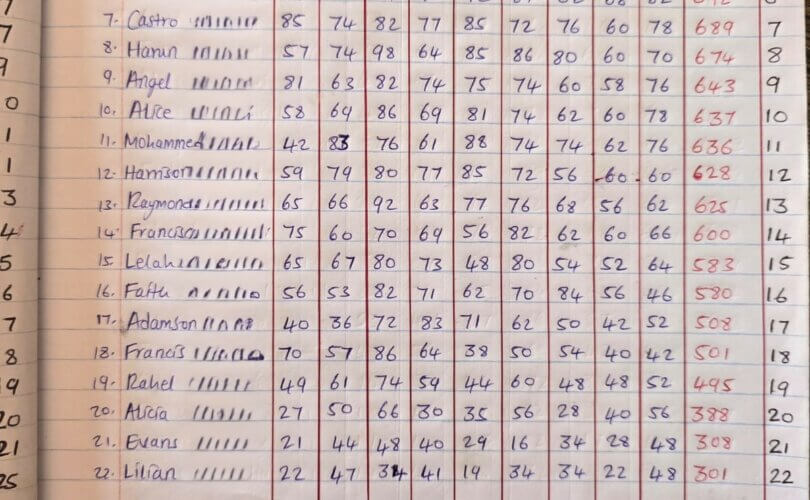 7. Castro 85 74 82 77 85 72 76 60 78 689 7
8. Harun 57 74 98 64 85 86 80 60 70 674 8
9. Angel 81 63 82 74 75 74 60 58 76 643 9
10. Alice 58 69 86 69 81 74 62 60 78 637 10
11. Mohammed 42 83 76 61 88 74 74 62 76 636 11
12. Harrison 59 79 80 77 85 72 56 60 60 628 12
13. Raymond 65 66 92 63 77 76 68 56 62 625 13
14. Francisco 75 60 70 69 56 82 62 60 66 600 14
15 Lelah 65 67 80 73 48 80 54 52 64 583 15
16. Faith 56 53 82 71 62 70 84 56 46 580 16
17. Adamson 40 36 72 83 71 62 50 42 52 508 17
18. Francis 70 57 86 64 38 50 54 40 42 501 18
19. Rahel 49 61 74 59 44 60 48 48 52 495 19
20. Alicia 27 50 66 30 35 56 28 40 56 388 20
21. Evans 21 44 48 40 29 16 34 28 48 308 21
22. Lilian 22 47 34 41 19 34 34 22 48 301 22